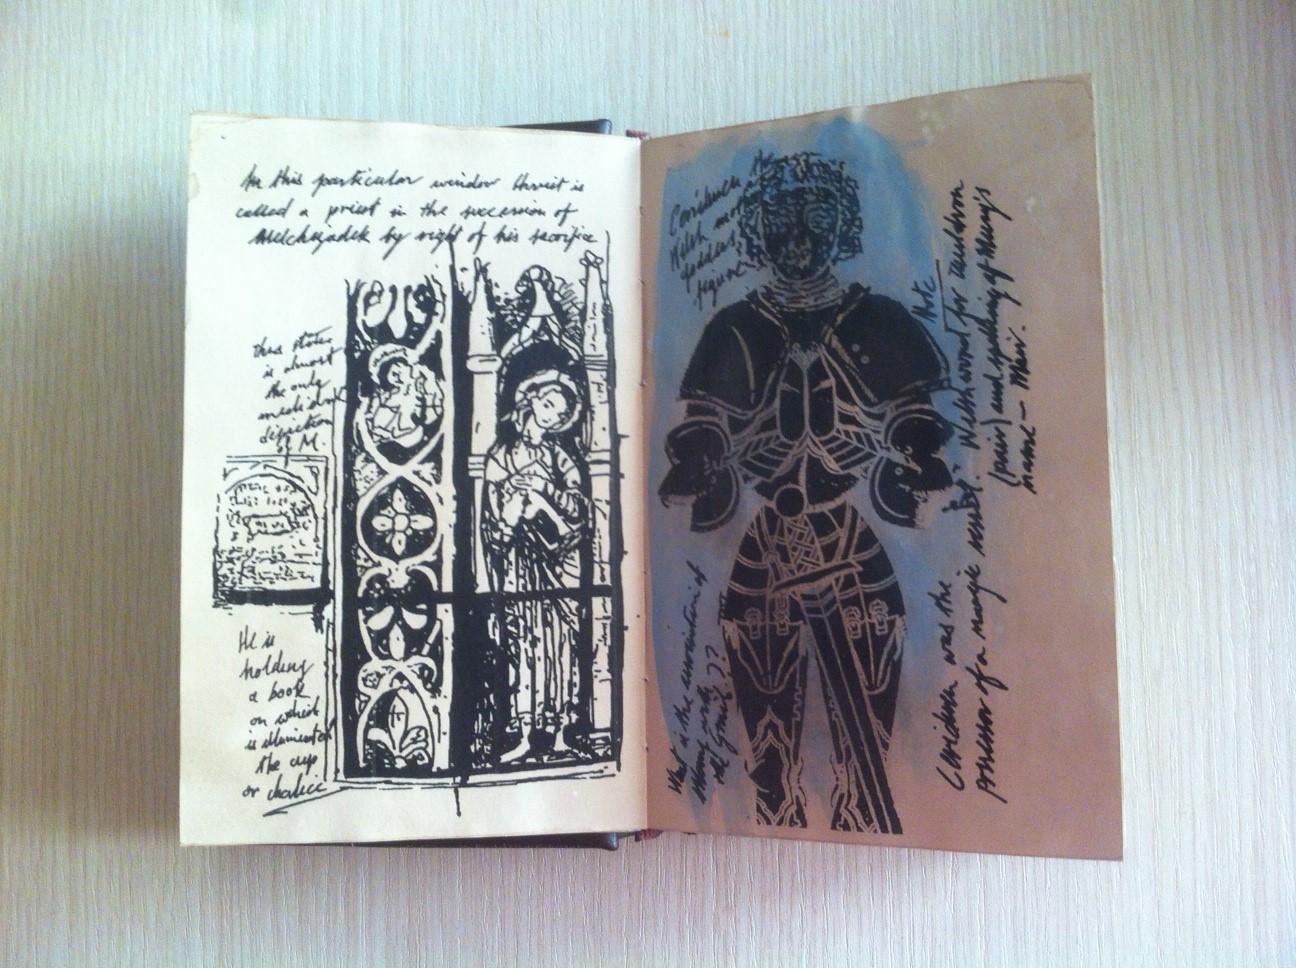 In this particular window Christ is
called a priest in the succession of
Melchizadek by right of his sacrifice
this stone
is almost
the only
mediaeval
depiction
of M.
He is
holding
a book
on which
is illuminated
the cup
or chalice
Ceridwen the
Welsh mother
goddess
figure
What is the connection of
with
the Grail??
Note
Welsh word for cauldron
(pair) and spelling of Mary's
name - Mair.
Ceridwen was the
possessor of a magic